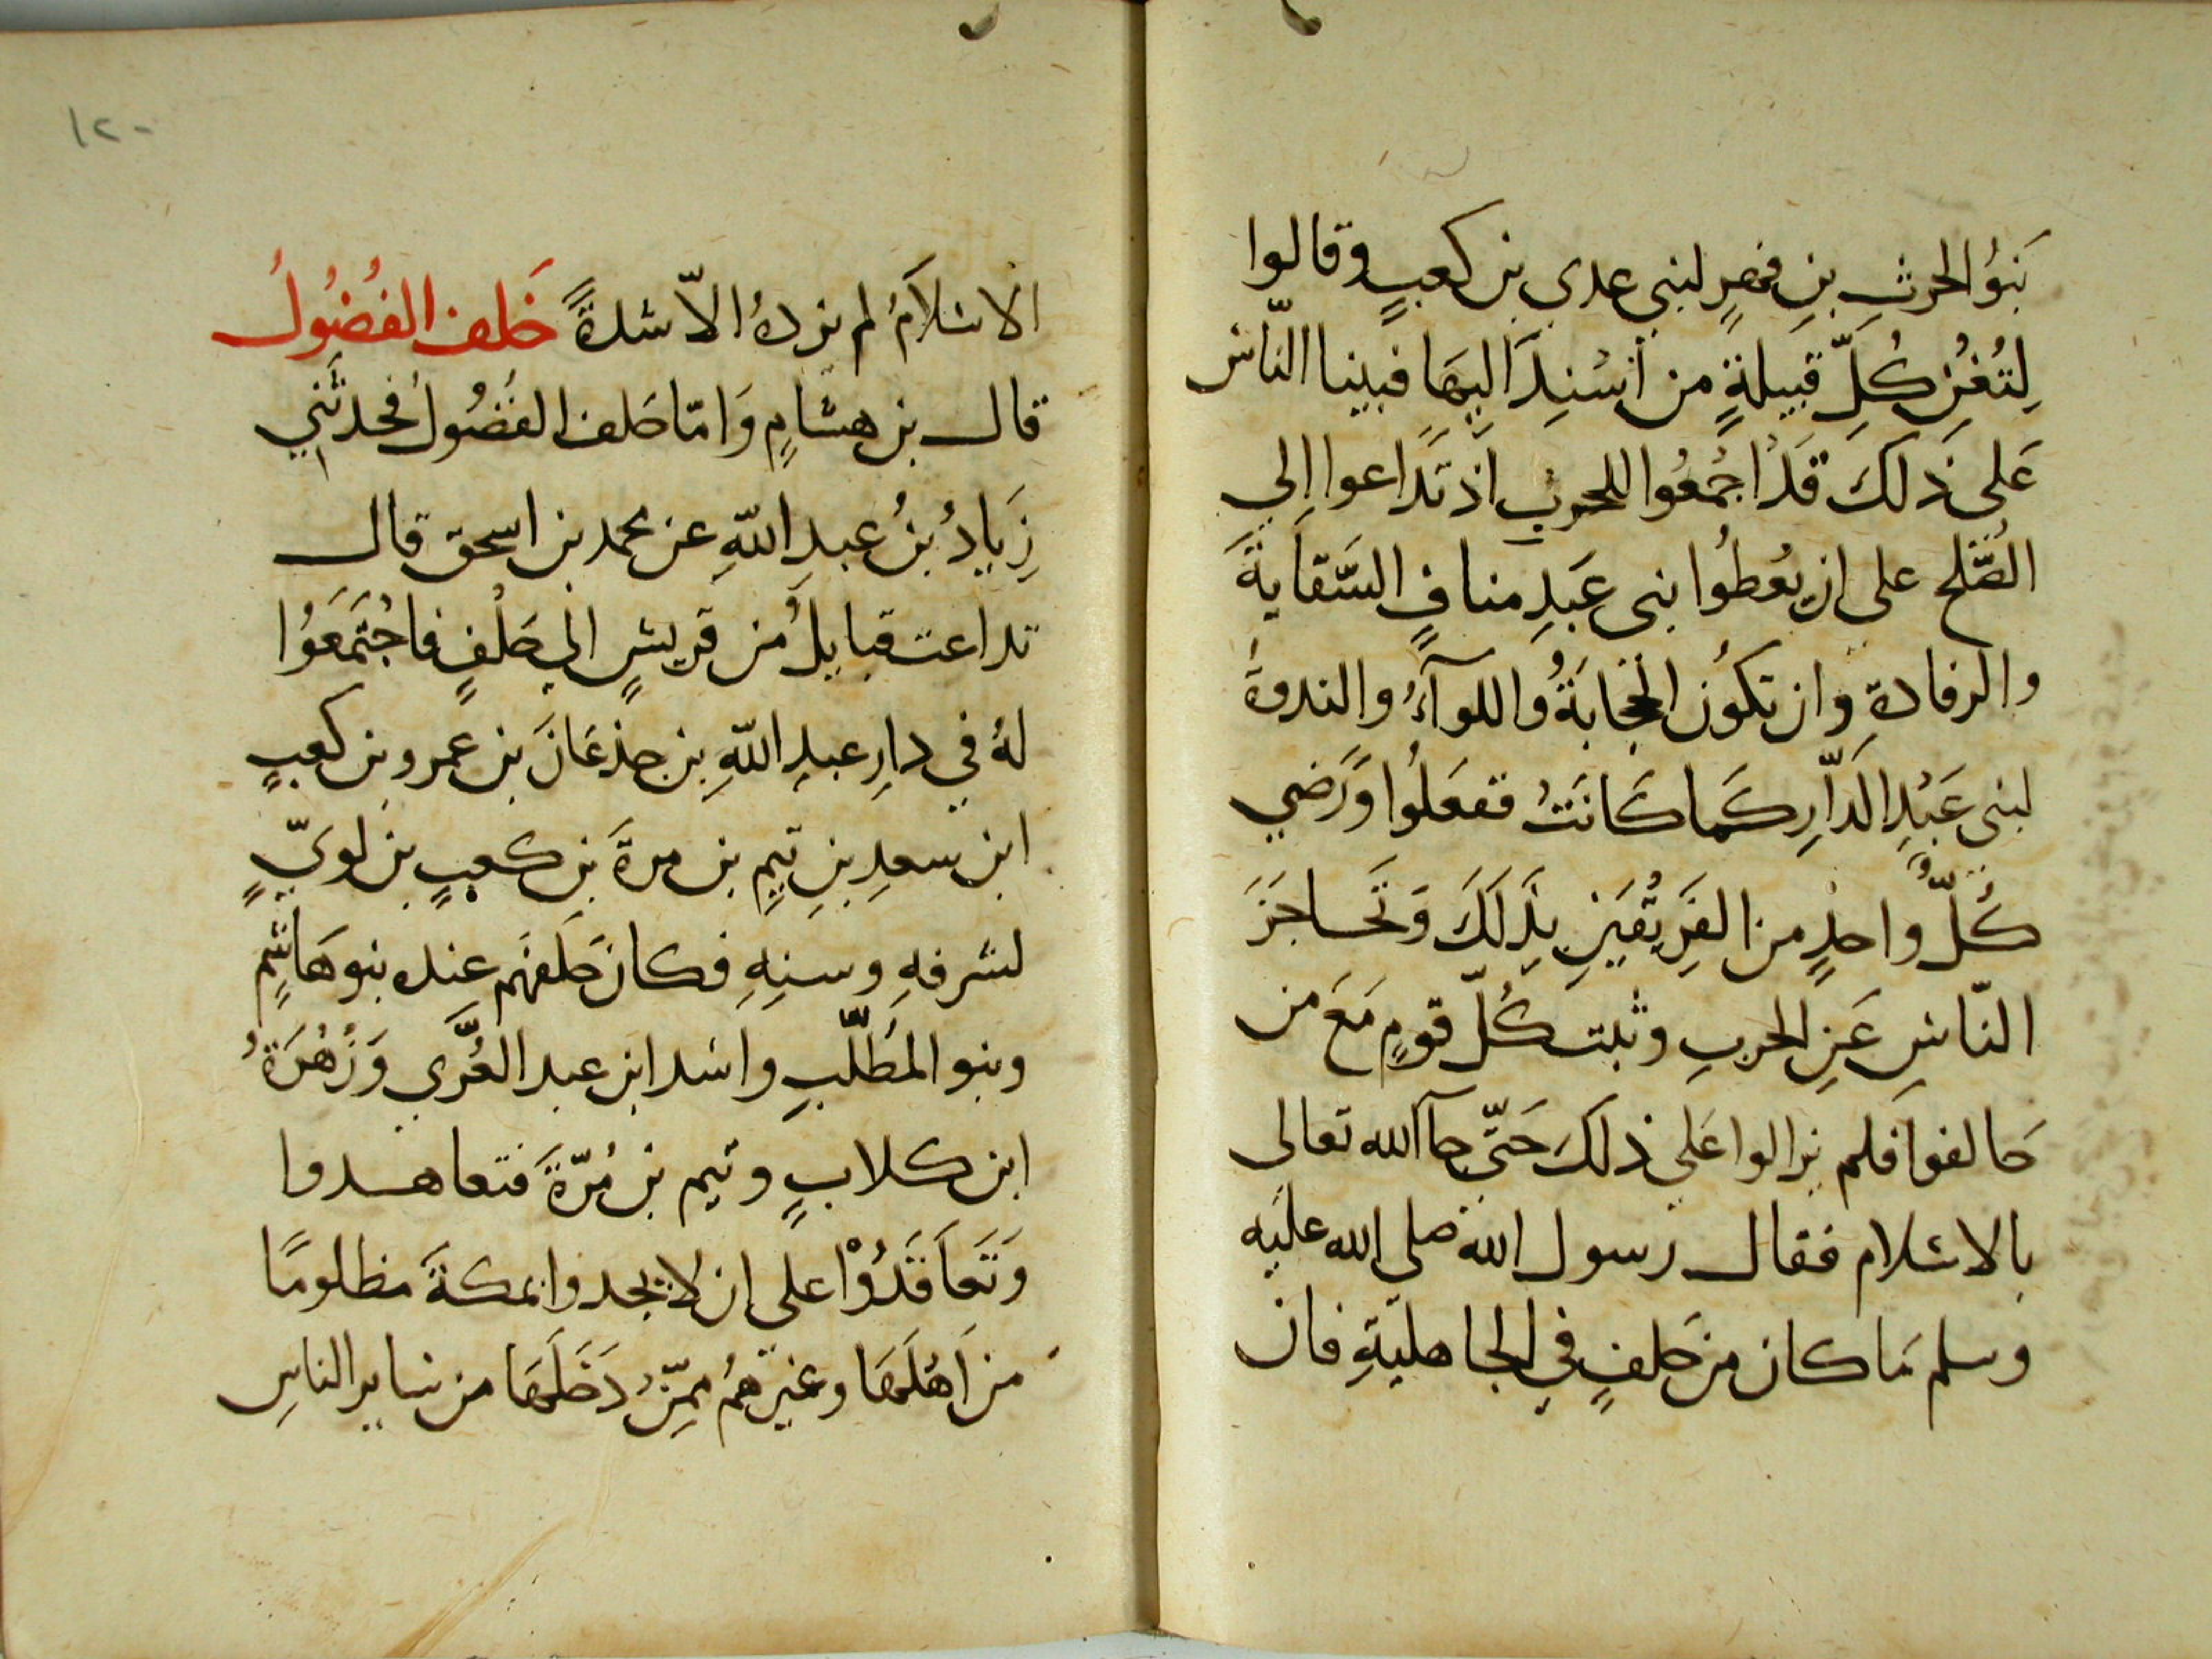 بَنُو الحرثِ بنِ فهرٍ لبني عدي بن كعبٍ وقالوا
لِتُغْنِ كُلّ قبيلةٍ من اُسْنِدَ اليهَا فبينا النّاس
عَلى ذلكَ قَدْ اجْمَعُوا للحرب اذ تَدَاعوا الى
الصُّلح على ان يُعطُوا بنى عَبدِ منافٍ السّقايةَ
والرفادةِ وان تكُون الحِجَابَةُ واللوآءُ والندوةُ
لبنى عَبْدِ الدّارِ كَما كَانَتْ ففعَلُوا وَرَضي
كُلّ واحدٍ من الفَرِيْقَيَنِ بِذَلَكَ وَتَحَاجَزَ
النّاسِ عَنِ الحربِ وثبت كُلّ قومٍ مَعَ من
حَالفوا فَلم يزالوا عَلي ذلكَ حَتّى جآ الله تعالى
بالاسْلام فقال رسول الله صلي الله عليه
وسلم مَا كان من حَلفٍ في الجاهليّةِ فان
١٢٠
الاسْلاَمُ لم يزدهُ الاّ شدةً حَلف الفُضُولُ
قال بن هشامٍ وَامّا حَلف الفُضُولُ فحدثَني
زِيَادُ بنُ عبدِ اللّهِ عن محمد بن اسحق قال
تداعت قبايلُ من قريشٍ الي حَلْفٍ فاجْتَمَعَوُا
لهُ في دارِ عبدِ اللّهِ بن جذعَانَ بن عمرو بن كعبٍ
ابن سعدِ بنِ تيمٍ بن مرةَ بن كعبٍ بن لويّ
لشرفهِ وسنِهِ فكان حَلفهَم عنده بنو هَاشِمٍ
وبنو المَطَلّبِ واسْد ابن عبد العُزَّي وَزُهْرَةُ
ابن كلابٍ وتيم بن مُرّةَ فتعاهدوا
وَتَعاَقَدُوْا على ان لا يجدوا بمكةَ مظلومًا
من اَهْلَهَا وغيرهُم مِمّنْ دَخَلَهَا من سَاير الناسِ